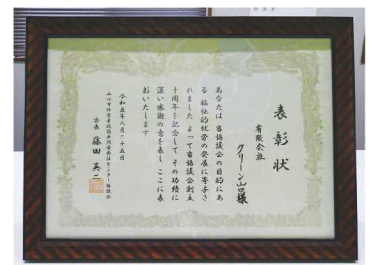 表彰状
有限会社
クリーン山口様
あなたは当協議会の目的にあ
る福祉的就労の発展に寄与さ
れました よって当協議会創立
十周年を記念して その功績に
深い感謝の意を表し ここに表
彰いたします
令和五年八月二十五日
会長 藤田 英二